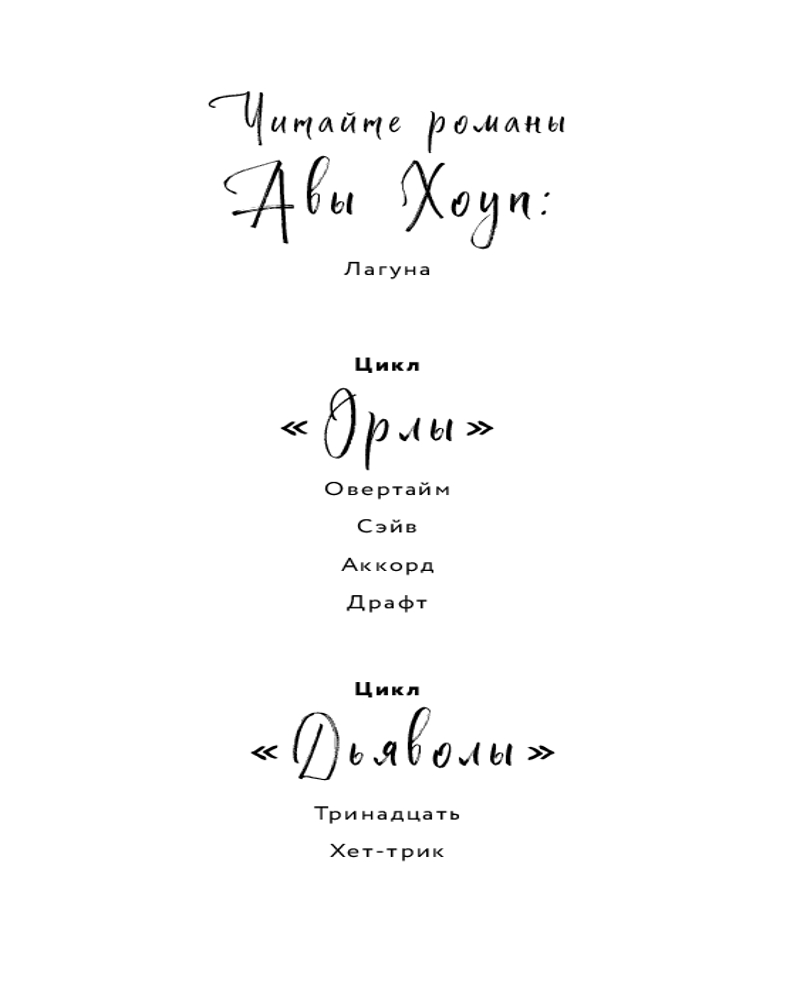 Читайте романы
Авы Хоуп:
Лагуна
Цикл
«Орлы»
Овертайм
Сэйв
Аккорд
Драфт
Цикл
«Дьяволы»
Тринадцать
Хет-трик